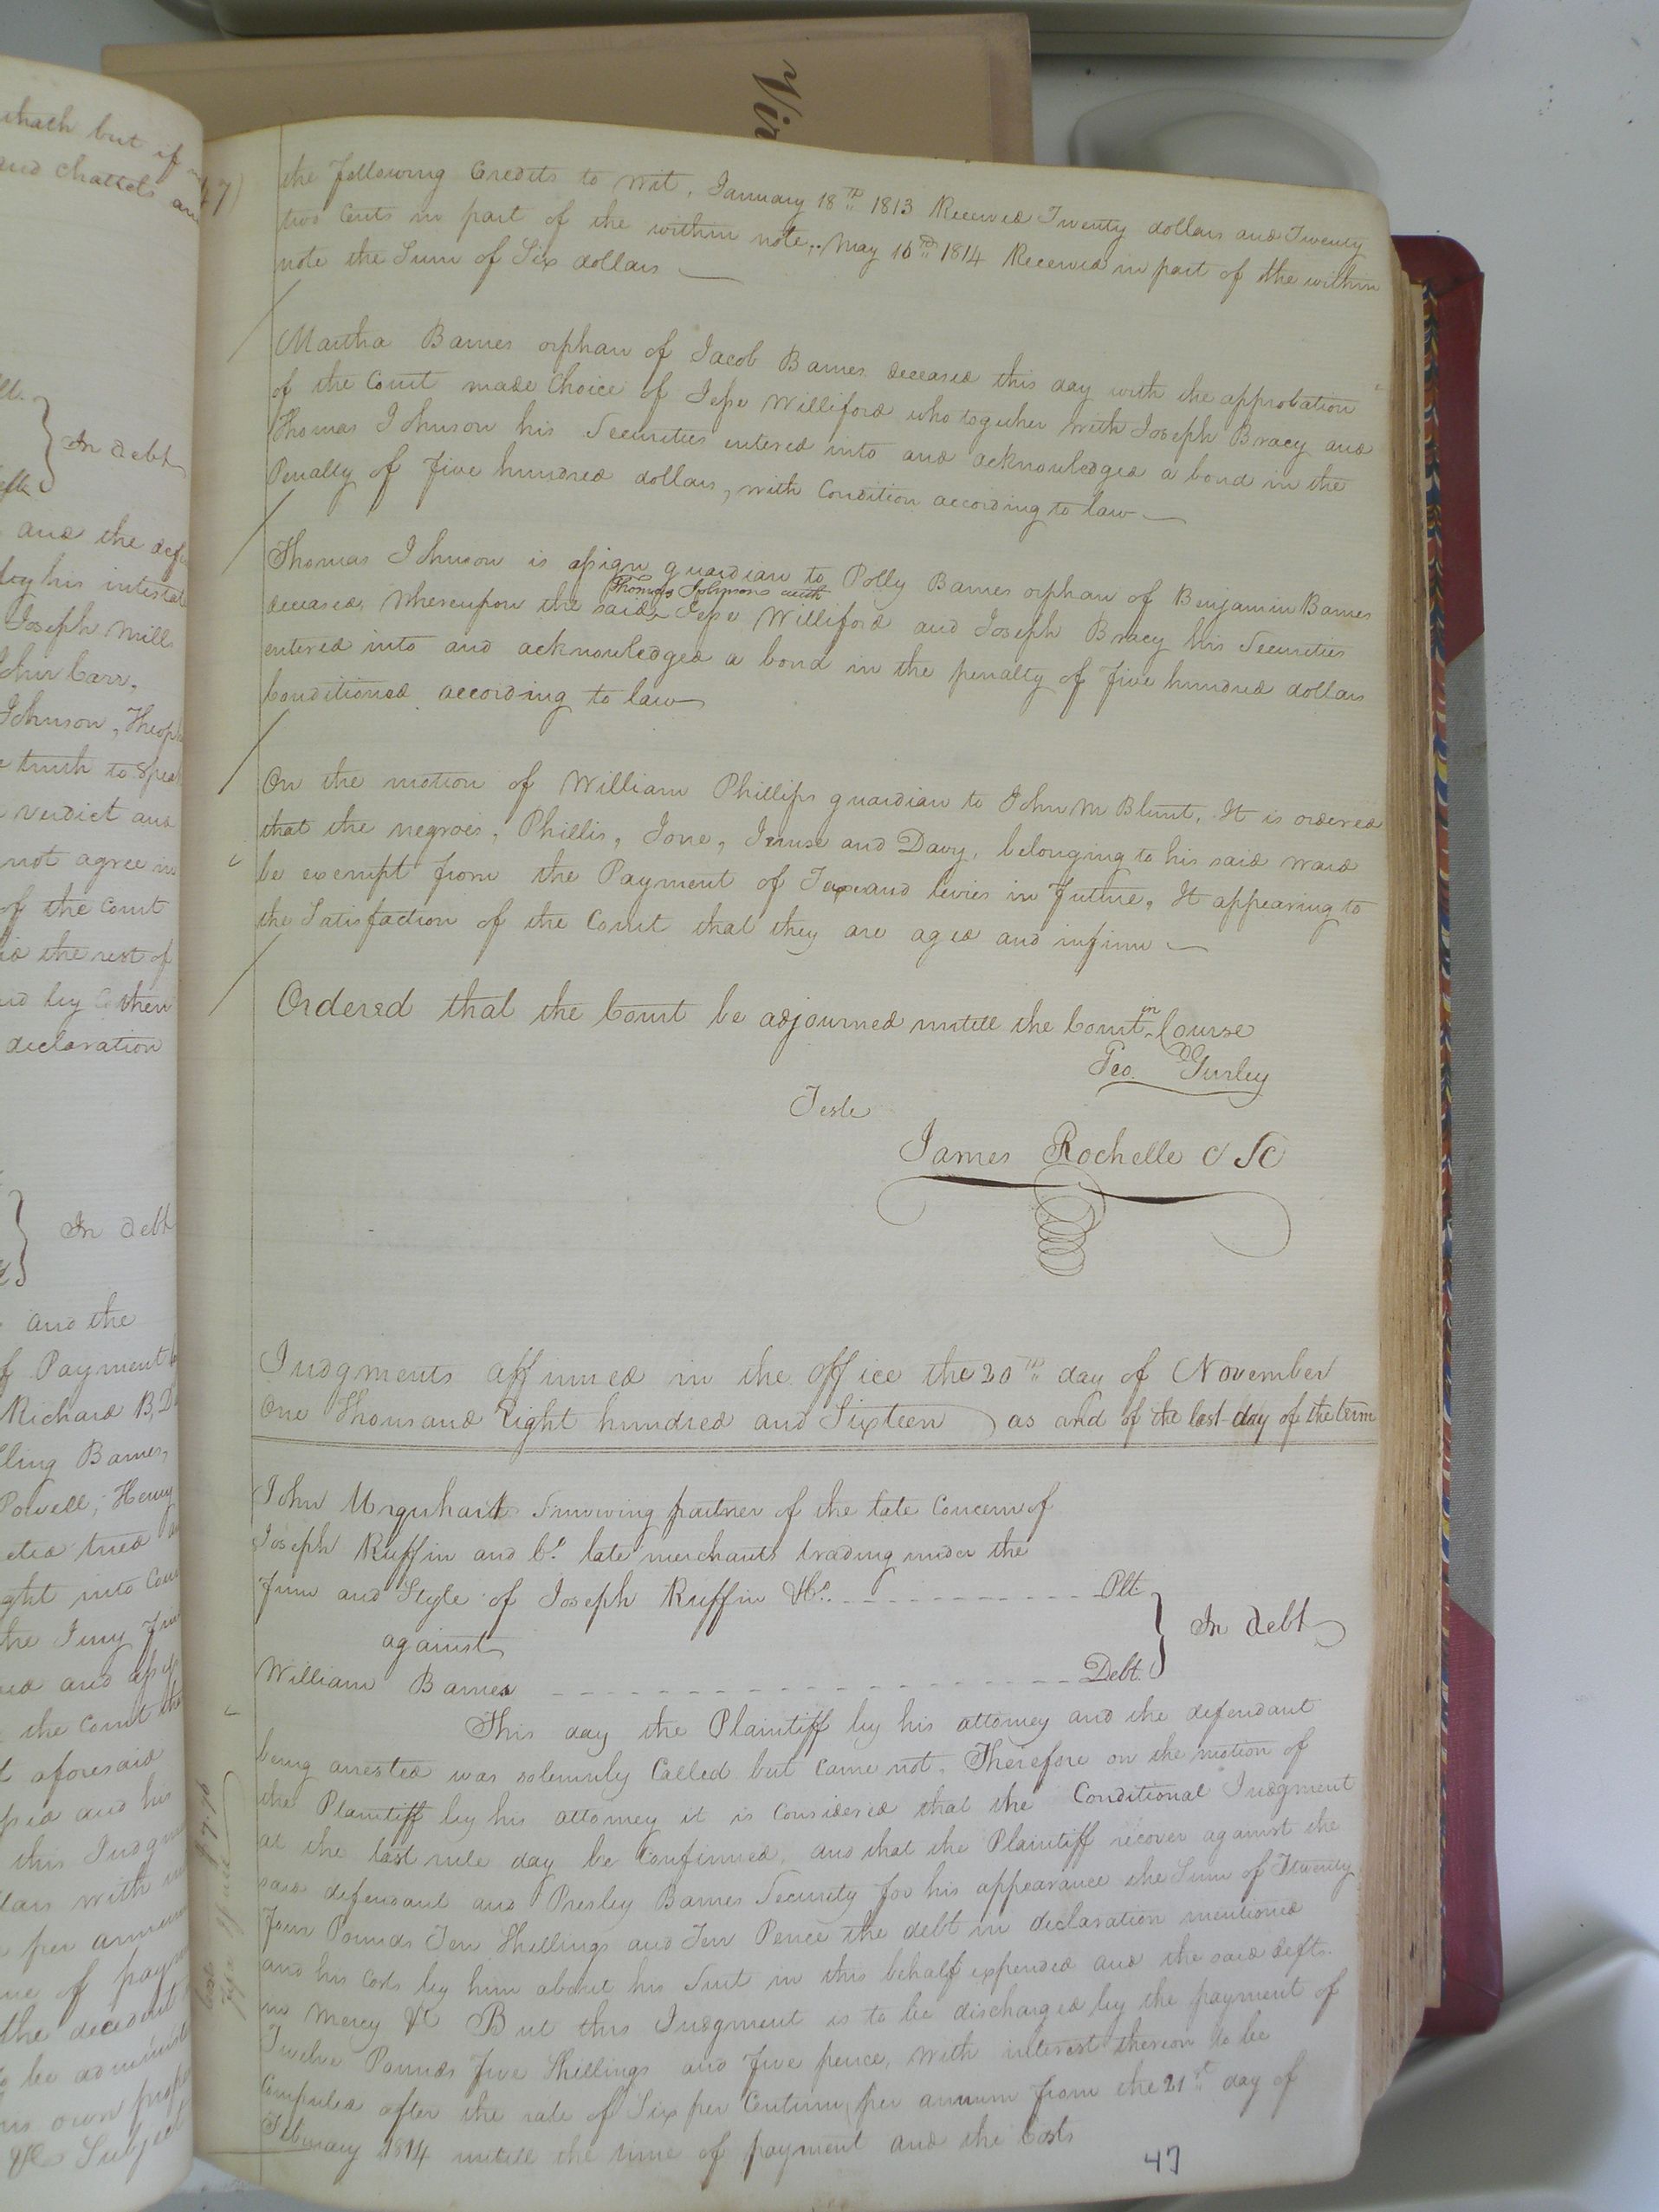 Vir
whath but if
and Chattels an
In debt
and the defe
by his intestat
Joseph Mill
John Carr,
Johnson, Theop
truth to Spea
verdict and
not agree in
of the Court
the rest of
declaration
In debt
and the
of Payment
Richard B, D
ling Barnes,
Powell, Henry
ght into Cou
the Jury
the Court tha
t aforesaid
and his
this Judgm
lars with in
per annum
me of paym
the decedent
to be administ
his own prope
&c Subject
47)
the following Credits to wit, January 18th 1813 Received Twenty dollars and Twenty
two Cents in part of the within note,. May 16th 1814 Received in part of the within
note the Sum of Six dollars
Martha Barnes orphan of Jacob Barnes deceased this day with the approbation
of the Court made Choice of Jesse Williford who together with Joseph Bracy and
Thomas Johnson his Securities entered into and acknowledged a bond in the
Penalty of five hundred dollars, with Condition according to law
Thomas Johnson is assign guardian to Polly Barnes orphan of Benjamin Barnes
deceased, Whereupon the said Thomas Johnson with Jesse Williford and Joseph Bracy his Securities
entered into and acknowledged a bond in the penalty of five hundred dollars
Conditioned according to law
On the motion of William Phillips guardian to John M Blunt, It is ordered
that the negroes, Phillis, Jone, and Davy, belonging to his said ward
be exempt from the Payment of Taxe and levies in future, It appearing to
the Satisfaction of the Court that they are aged and infirm
Ordered that the Court be adjourned untill the Court in Course
Geo Gurley
Teste
James Rochelle C S C
Judgments affirmed in the office the 20th day of November
One Thousand Eight hundred and Sixteen as and of the last day of the term
John Urquhart Surviving partner of the late Concern of
Joseph Ruffin and Co. late merchants trading under the
firm and Style of Joseph Ruffin & Co. Plt.
against
In debt
William Barnes Debt.
This day the Plaintiff by his attorney and the defendant
being arrested was solemnly Called but Came not. Therefore on the motion of
the Plaintiff by his attorney it is Considered that the Conditional Judgment
at the last rule day be Confirmed, and that the Plaintiff recover against the
said defendant and Presley Barnes Security for his appearance the Sum of Twenty
four Pounds Ten Shillings and Ten Pence the debt in declaration mentioned
and his Costs by him about his Suit in this behalf expended and the said defts.
in Mercy &c But this Judgment is to be discharged by the payment of
Twelve Pounds five Shillings and five pence, with interest thereon to be
Computed after the rate of Six per Centum per annum from the 21st day of
February 1814 untill the time of payment and the Costs
Costs
47